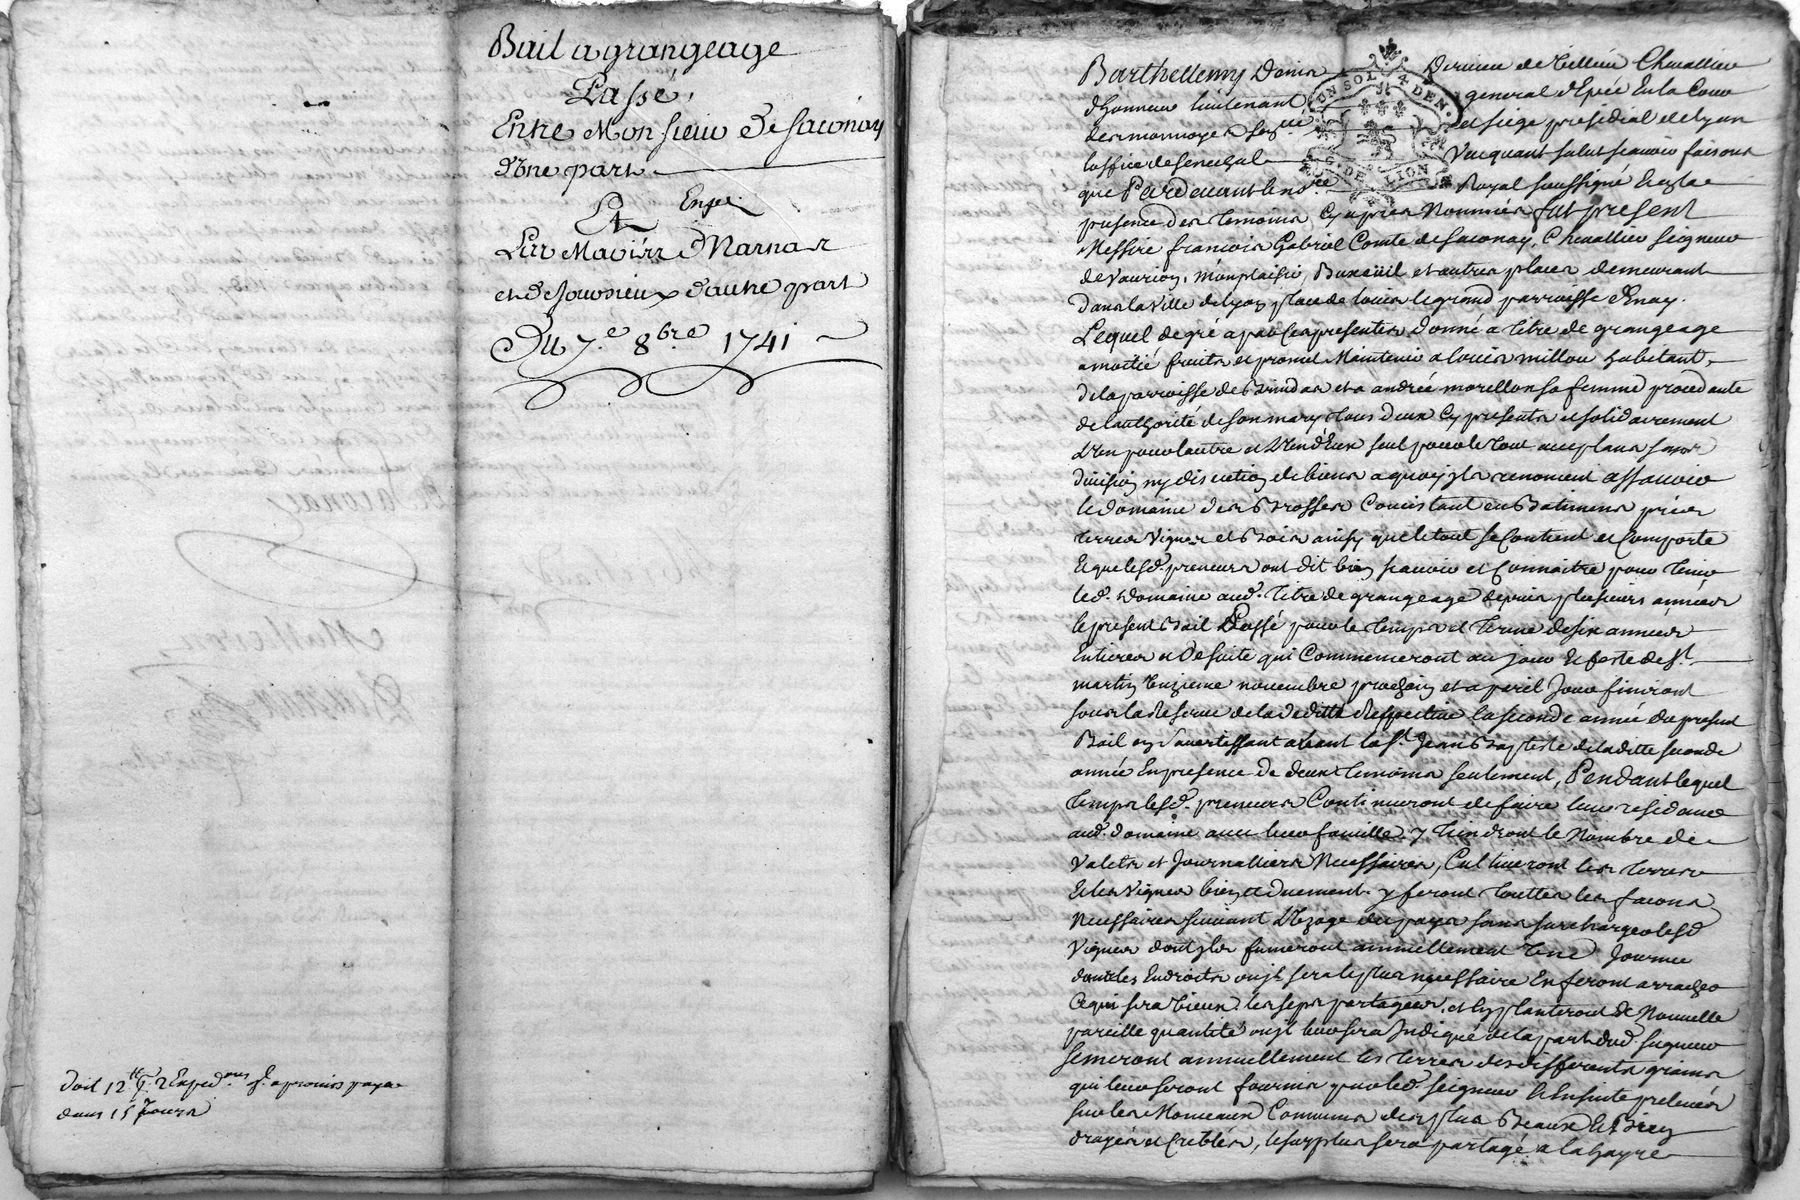 Bail a grangeage
Passé,
Entre Monsieur De Saconay
d'une part
Et
Les Mariéz Marnas
et de Jousieux d'autre part
Du 7.e 8bre 1741
Doit 12tt
dans 15 Jours
UN SOL 4 DEN.
G. DE LION
Barthellemy Denis de Tillieu Chevallier
d'honneur lieutenant general d'Epée En la Cour
des monnoyes et siege presidial de lyon
l'office de senechal Vacquant salut scavoir faisons
que Pardevant le nore Royal soussigné Et en la
presence des temoins Cy apres Nommés fut present
Messire francois Gabriel Comte de Saconay, Chevallier seigneur
de Vaurion, monplaisir, Buxeuil et autres places demeurant
dans la Ville de lyon place de louis le grand parroisse d'Enay.
Lequel de gré a par ces presentes Donné a titre de grangeage
a moitié fruits et promet Maintenir a louis millou habitant
de la parroisse de Brindas et a andrée morellon sa femme procedante
de l'authorité de son mary tous deux Cy presents et solidairement
l'un pour l'autre et l'un d'Eux seul pour le tout acceptans sans
division ny discution de biens a quoy ils renoncent assavoir
le domaine des Brosses Consistant en Batimens prés
terres Vignes et Bois ainsy que le tout se Contient et Comporte
Et que lesd. preneurs ont dit bien scavoir et Connoitre pour tenir
led. domaine aud. titre de grangeage depuis plusieurs années
le present Bail Passé pour le temps et terme de six années
Entieres et de suite qui Commenceront au jour Et feste de St
martin onzieme novembre prochain et a pareil Jour finiront
sous la reserve de la deditte respective la seconde année du present
Bail en s'avertissant avant la St Jean Baptiste de laditte seconde
année En presence de deux temoins seulement, Pendant lequel
temps lesd. preneurs Continueront de faire leur residance
aud. domaine avec leur famille y tiendront le Nombre de
Valets et Journalliers Necessaires, Cultiveront les terres
Et les Vignes bien et duement. y feront touttes les facons
Necessaires suivant L'Uzage du pays sans surcharger lesd.
Vignes dont ils fumeront annuellement Une Journée
dans les Endroits ou il sera le plus necessaire En feront arracher
Ce qui sera Vieux les seps partagés, et en planteront de Nouvelle
pareille quantité ou il leur sera Indiqué de la part dud. seigneur
semeront annuellement les terres des differents grains
qui leur seront fournis par led. seigneur Et Ensuite prelevés
sur les Monceaux Communs des plus Beaux Et Bien
dragés et Criblés, le surplus sera partagé a la